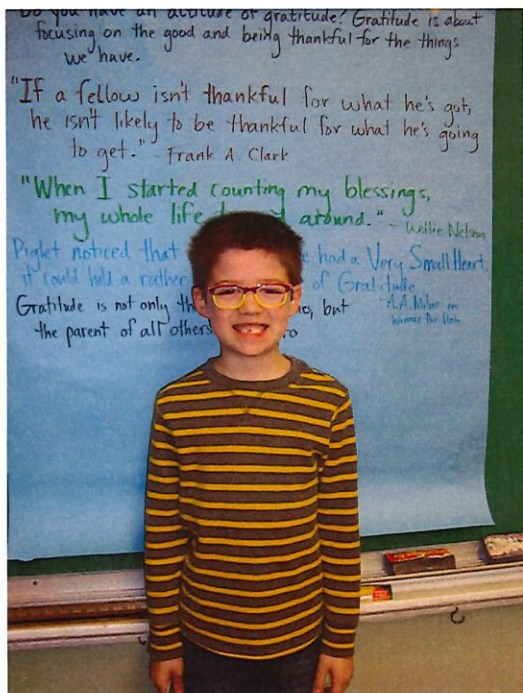 Do you have an attitude of gratitude? Gratitude is about
focusing on the good and being thankful for the things
we have.
"If a fellow isn't thankful for what he's got,
he isn't likely to be thankful for what he's going
to get." - Frank A. Clark
"When I started counting my blessings,
my whole life around." - Willie Nelson
Piglet noticed that had a Very Small Heart,
it could hold a rather of Gratitude
Gratitude is not only but
A.A. Milne in
the parent of all others
Winnie the Pooh